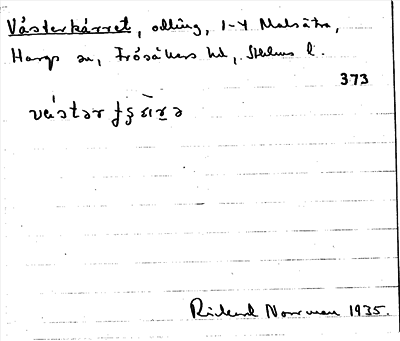 Västerkärret, odling, 1-4 Malsätra,
Hargs sn, Frösåkers hd, Sthlms l.
373
Rickard Norrman 1935.